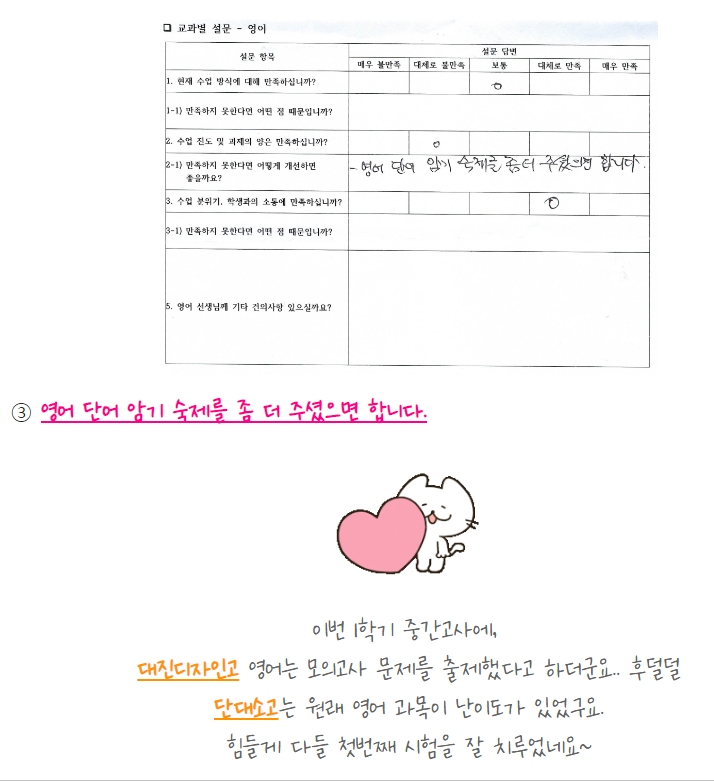 ❑ 교과별 설문 - 영어
설문 항목
설문 답변
매우 불만족 대체로 불만족 보통 대체로 만족 매우 만족
1. 현재 수업 방식에 대해 만족하십니까?
1-1) 만족하지 못한다면 어떤 점 때문입니까?
2. 수업 진도 및 과제의 양은 만족하십니까?
2-1) 만족하지 못한다면 어떻게 개선하면
좋을까요?
- 영어 단어 암기 숙제를 좀 더 주셨으면 합니다.
3. 수업 분위기, 학생과의 소통에 만족하십니까?
3-1) 만족하지 못한다면 어떤 점 때문입니까?
5. 영어 선생님께 기타 건의사항 있으실까요?
③ 영어 단어 암기 숙제를 좀 더 주셨으면 합니다.
이번 1학기 중간고사에,
대진디자인고 영어는 모의고사 문제를 출제했다고 하더군요.. 후덜덜
단대소고는 원래 영어 과목이 난이도가 있었구요.
힘들게 다들 첫번째 시험을 잘 치루었네요~